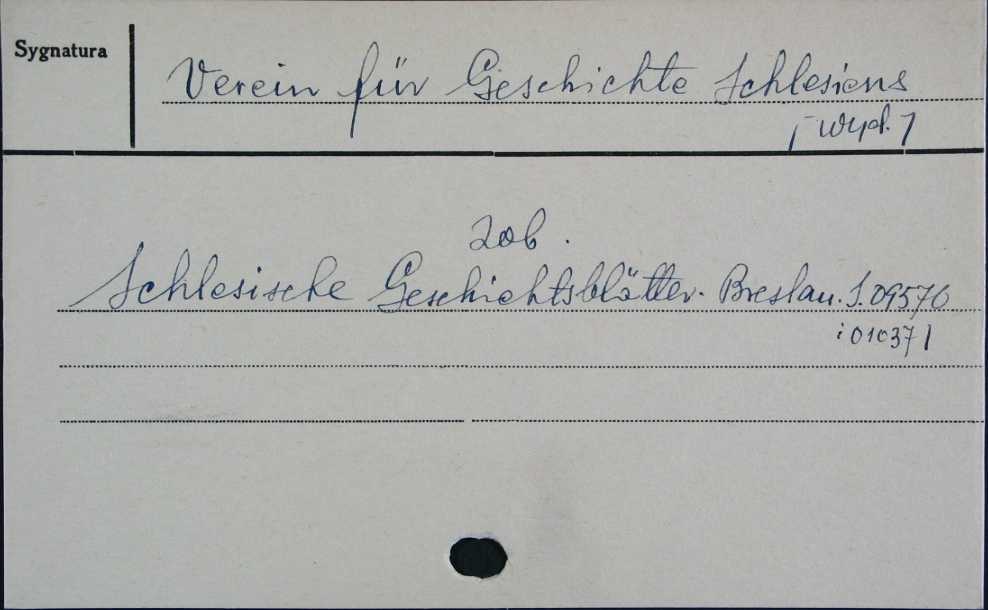 Sygnatura
Verein für Geschichte Schlesiens
[Wyd.]
Zob.
Schlesische Geschichtsblätter. Breslau. S. 09576
i 010371